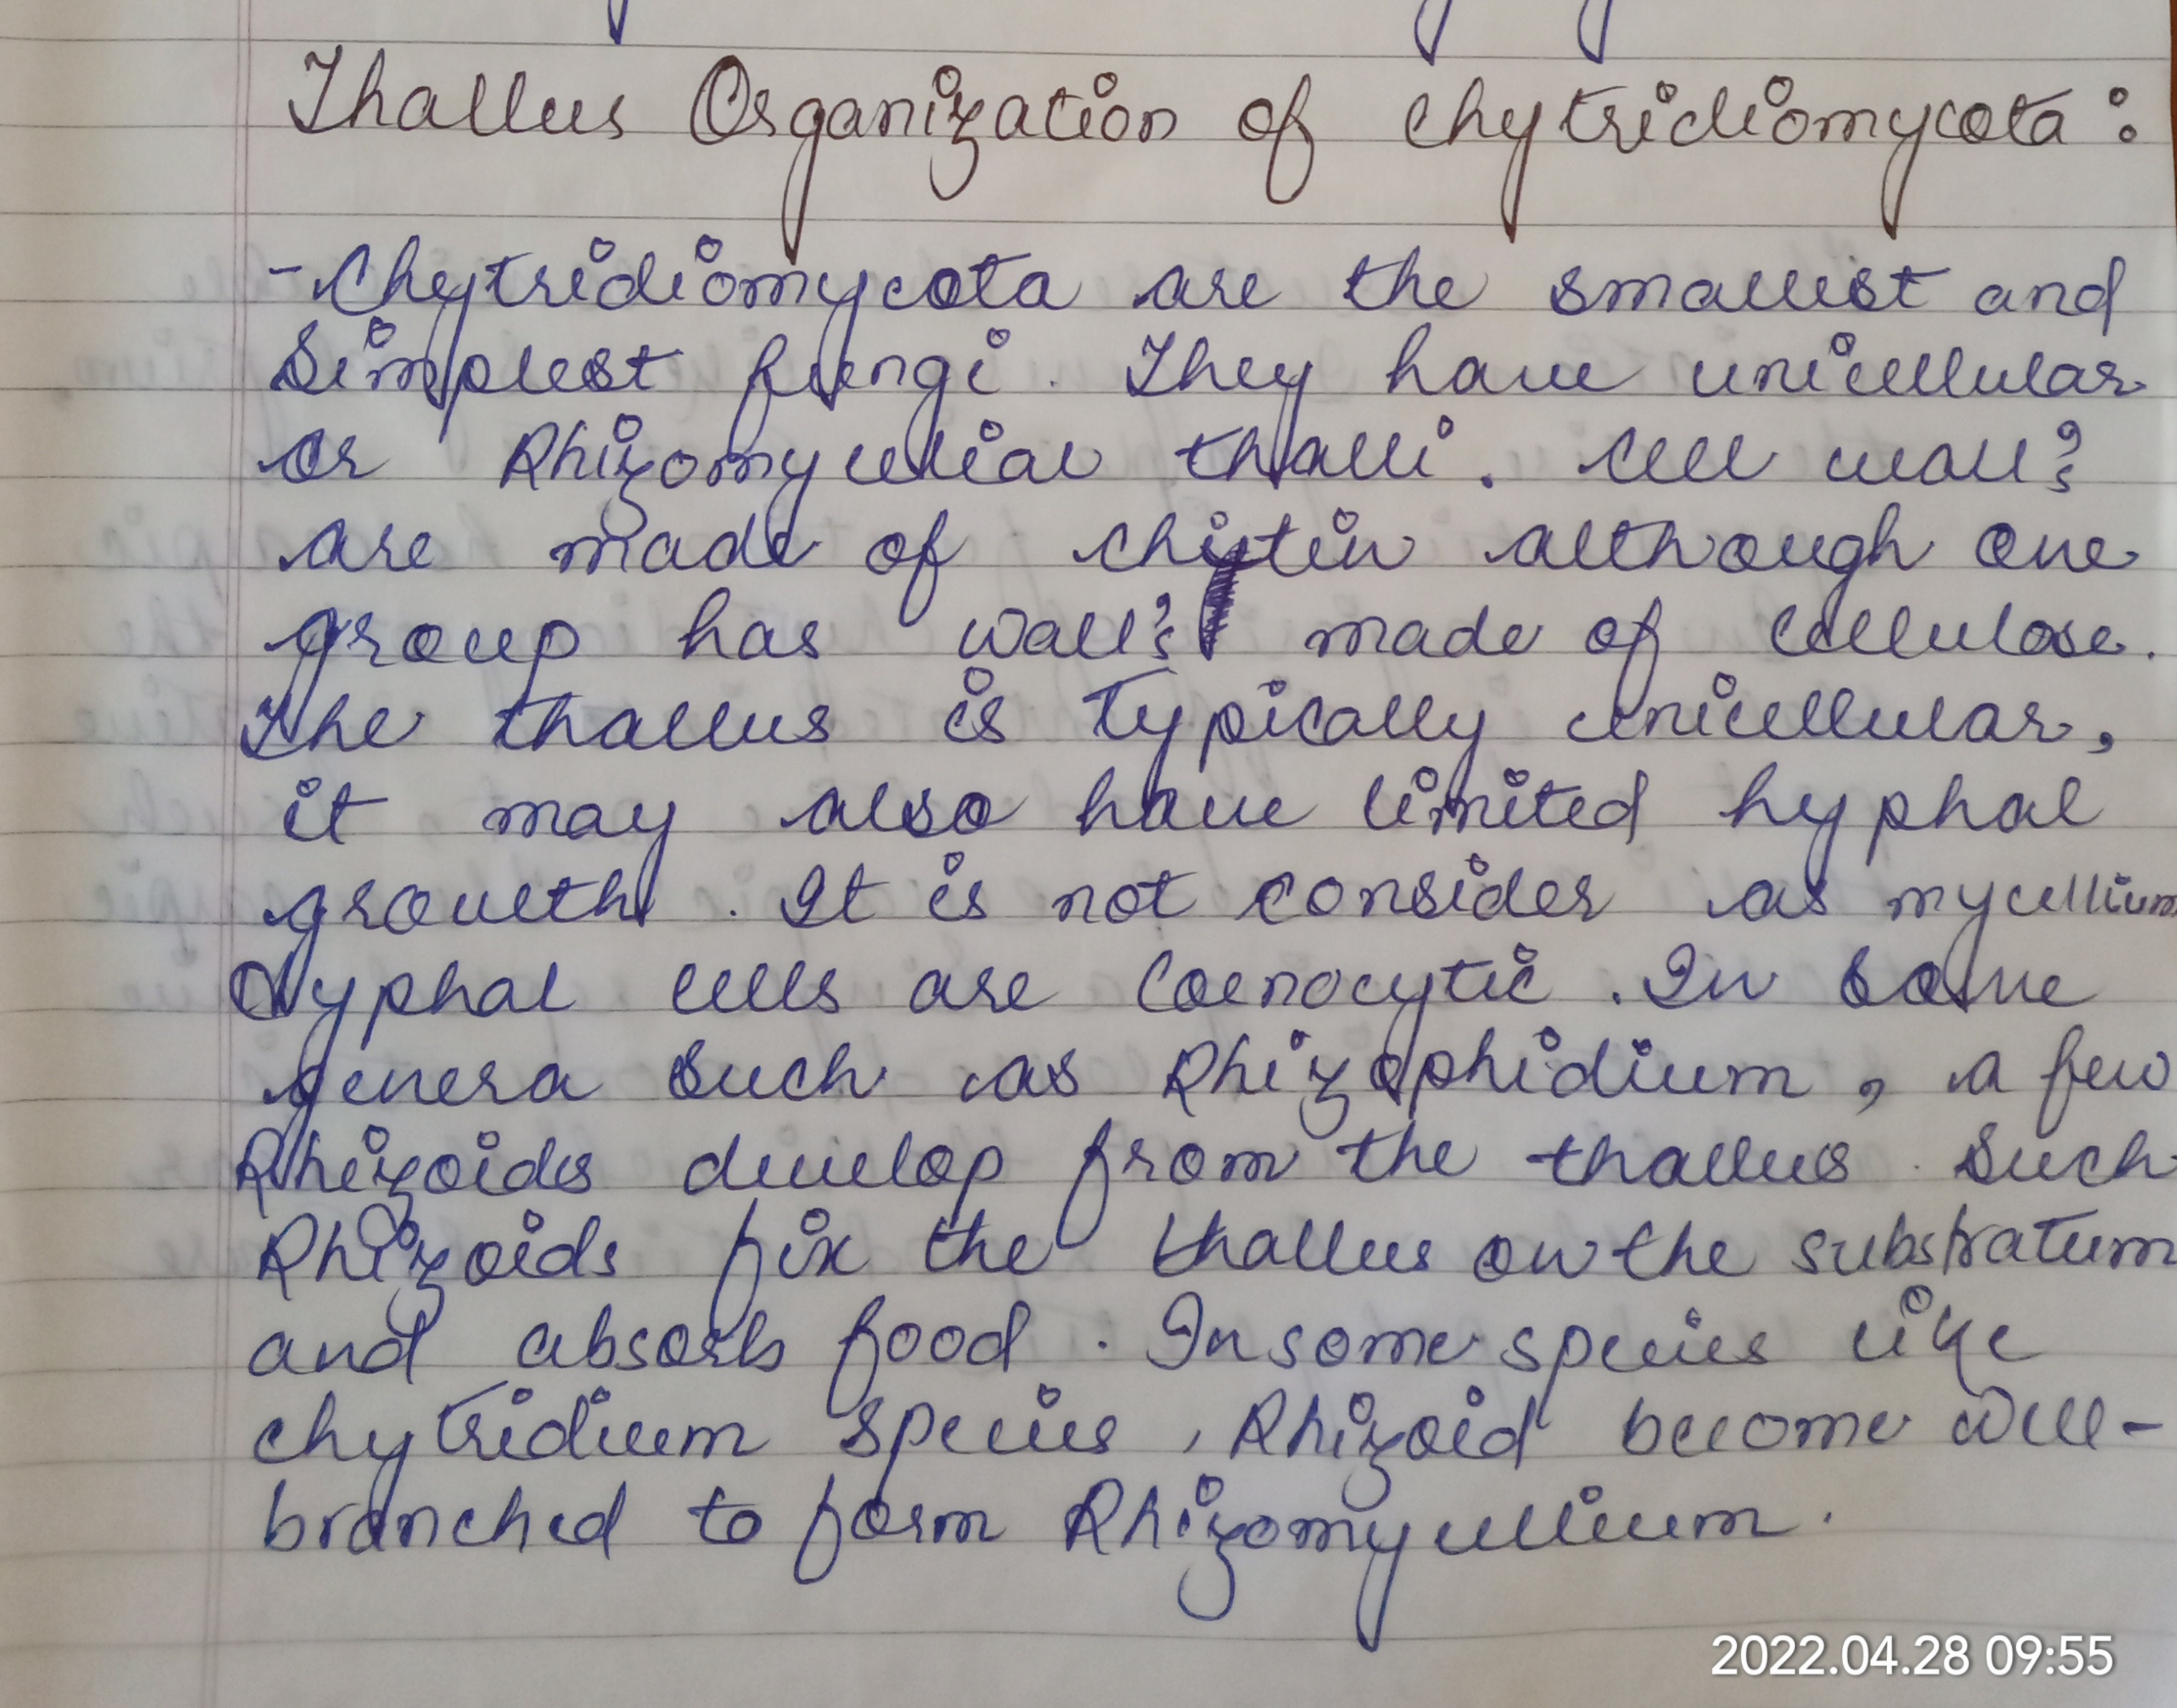 Thallus Organization of chytridiomycota :
- Chytridiomycota are the smallest and
Simplest fungi . They have unicellular
or Rhizomycelial thalli . Cell wall's
are made of chitin although one
group has wall's made of cellulose.
The thallus is typically unicellular,
it may also have limited hyphal
groweth . It is not consider as mycellium
Hyphal cells are Coenocytic . In some
genera such as Rhizophidium , a few
Rhizoids develop from the thallus . Such
Rhizoids fix the thallus on the substratum
and absorb food . In some species like
chytridium species , Rhizoid become well-
branched to form Rhizomycellium .
2022.04.28 09:55